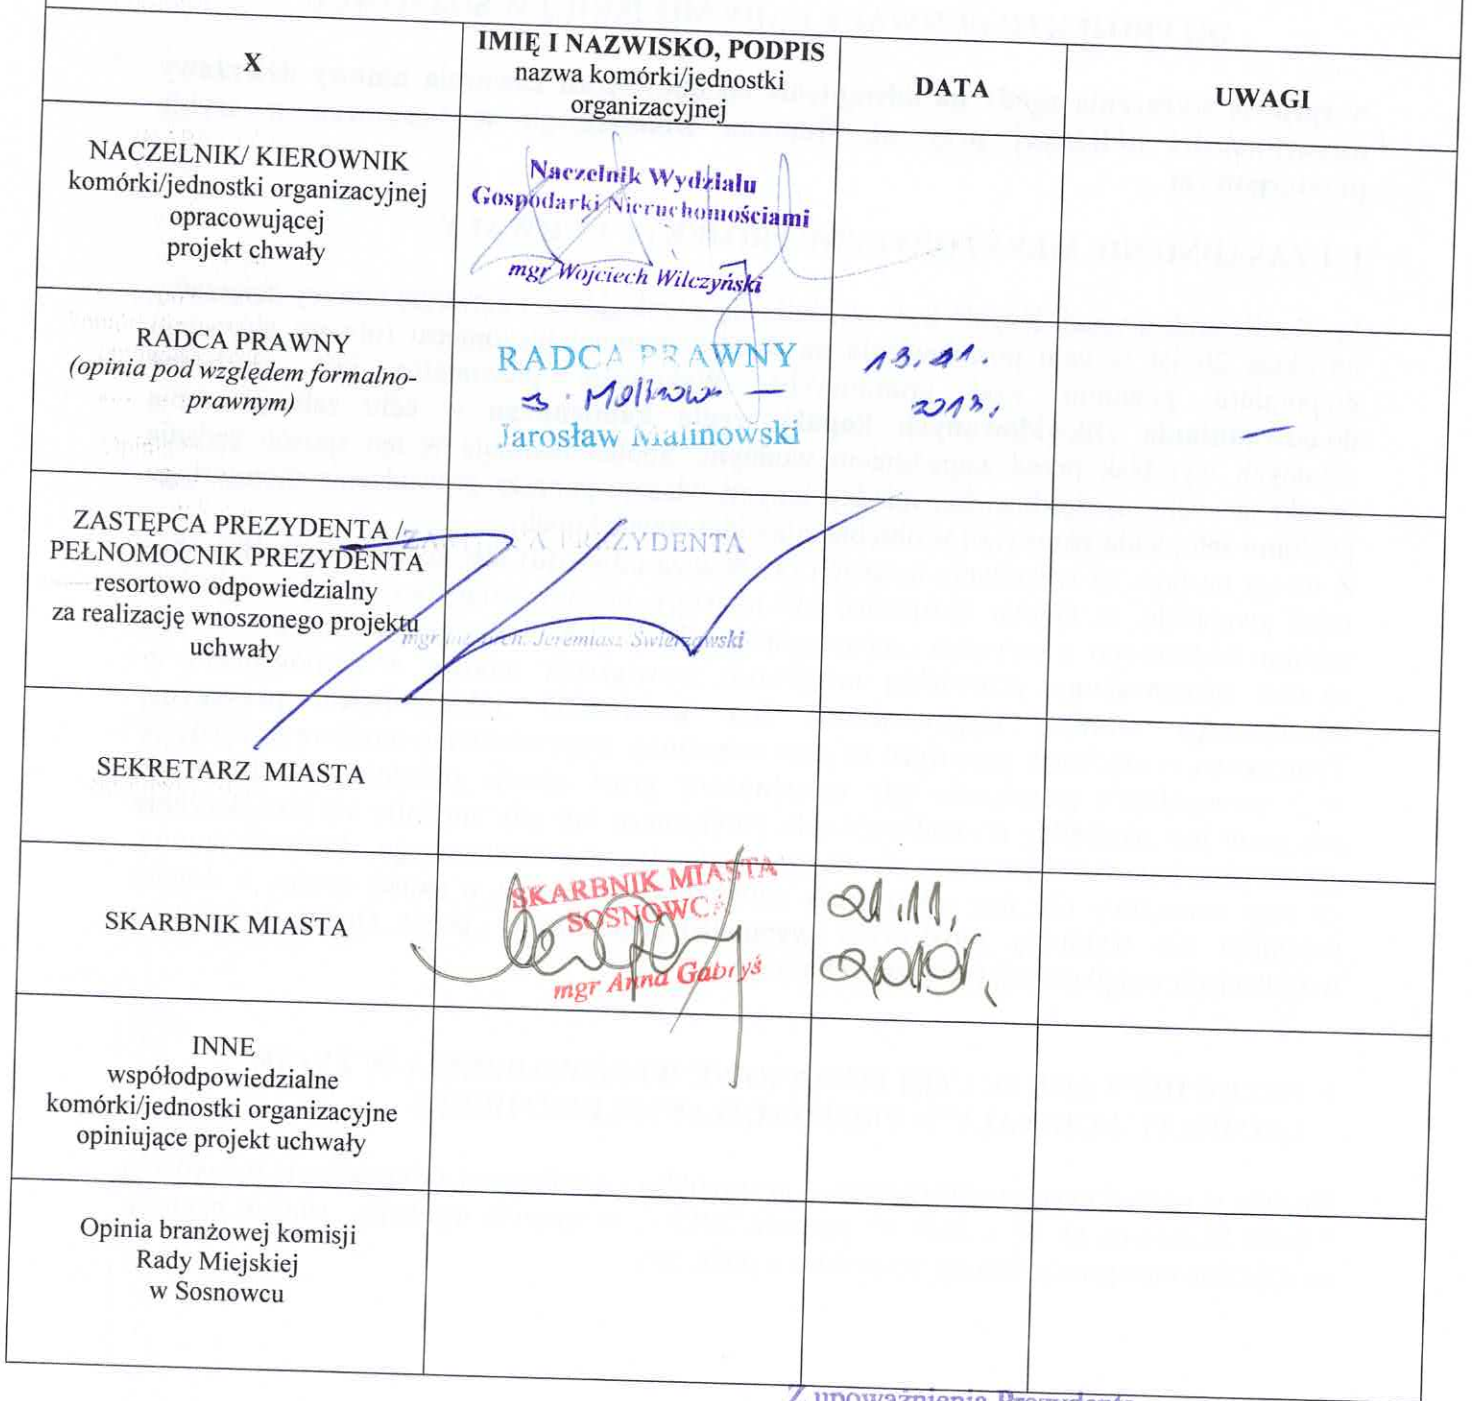 X
IMIĘ I NAZWISKO, PODPIS
nazwa komórki/jednostki
organizacyjnej
DATA
UWAGI
NACZELNIK/ KIEROWNIK
komórki/jednostki organizacyjnej
opracowującej
projekt chwały
Naczelnik Wydziału
Gospodarki Nieruchomościami
mgr Wojciech Wilczyński
RADCA PRAWNY
(opinia pod względem formalno-
prawnym)
RADCA PRAWNY
Jarosław Malinowski
13.11.
2013.
ZASTĘPCA PREZYDENTA /
PEŁNOMOCNIK PREZYDENTA
resortowo odpowiedzialny
za realizację wnoszonego projektu
uchwały
ZASTĘPCA PREZYDENTA
mgr Jeremiasz Świerzawski
SEKRETARZ MIASTA
SKARBNIK MIASTA
SKARBNIK MIASTA
SOSNOWCA
mgr Anna Gabryś
21.11.
INNE
współodpowiedzialne
komórki/jednostki organizacyjne
opiniujące projekt uchwały
Opinia branżowej komisji
Rady Miejskiej
w Sosnowcu
Z upoważnienia Prezydenta